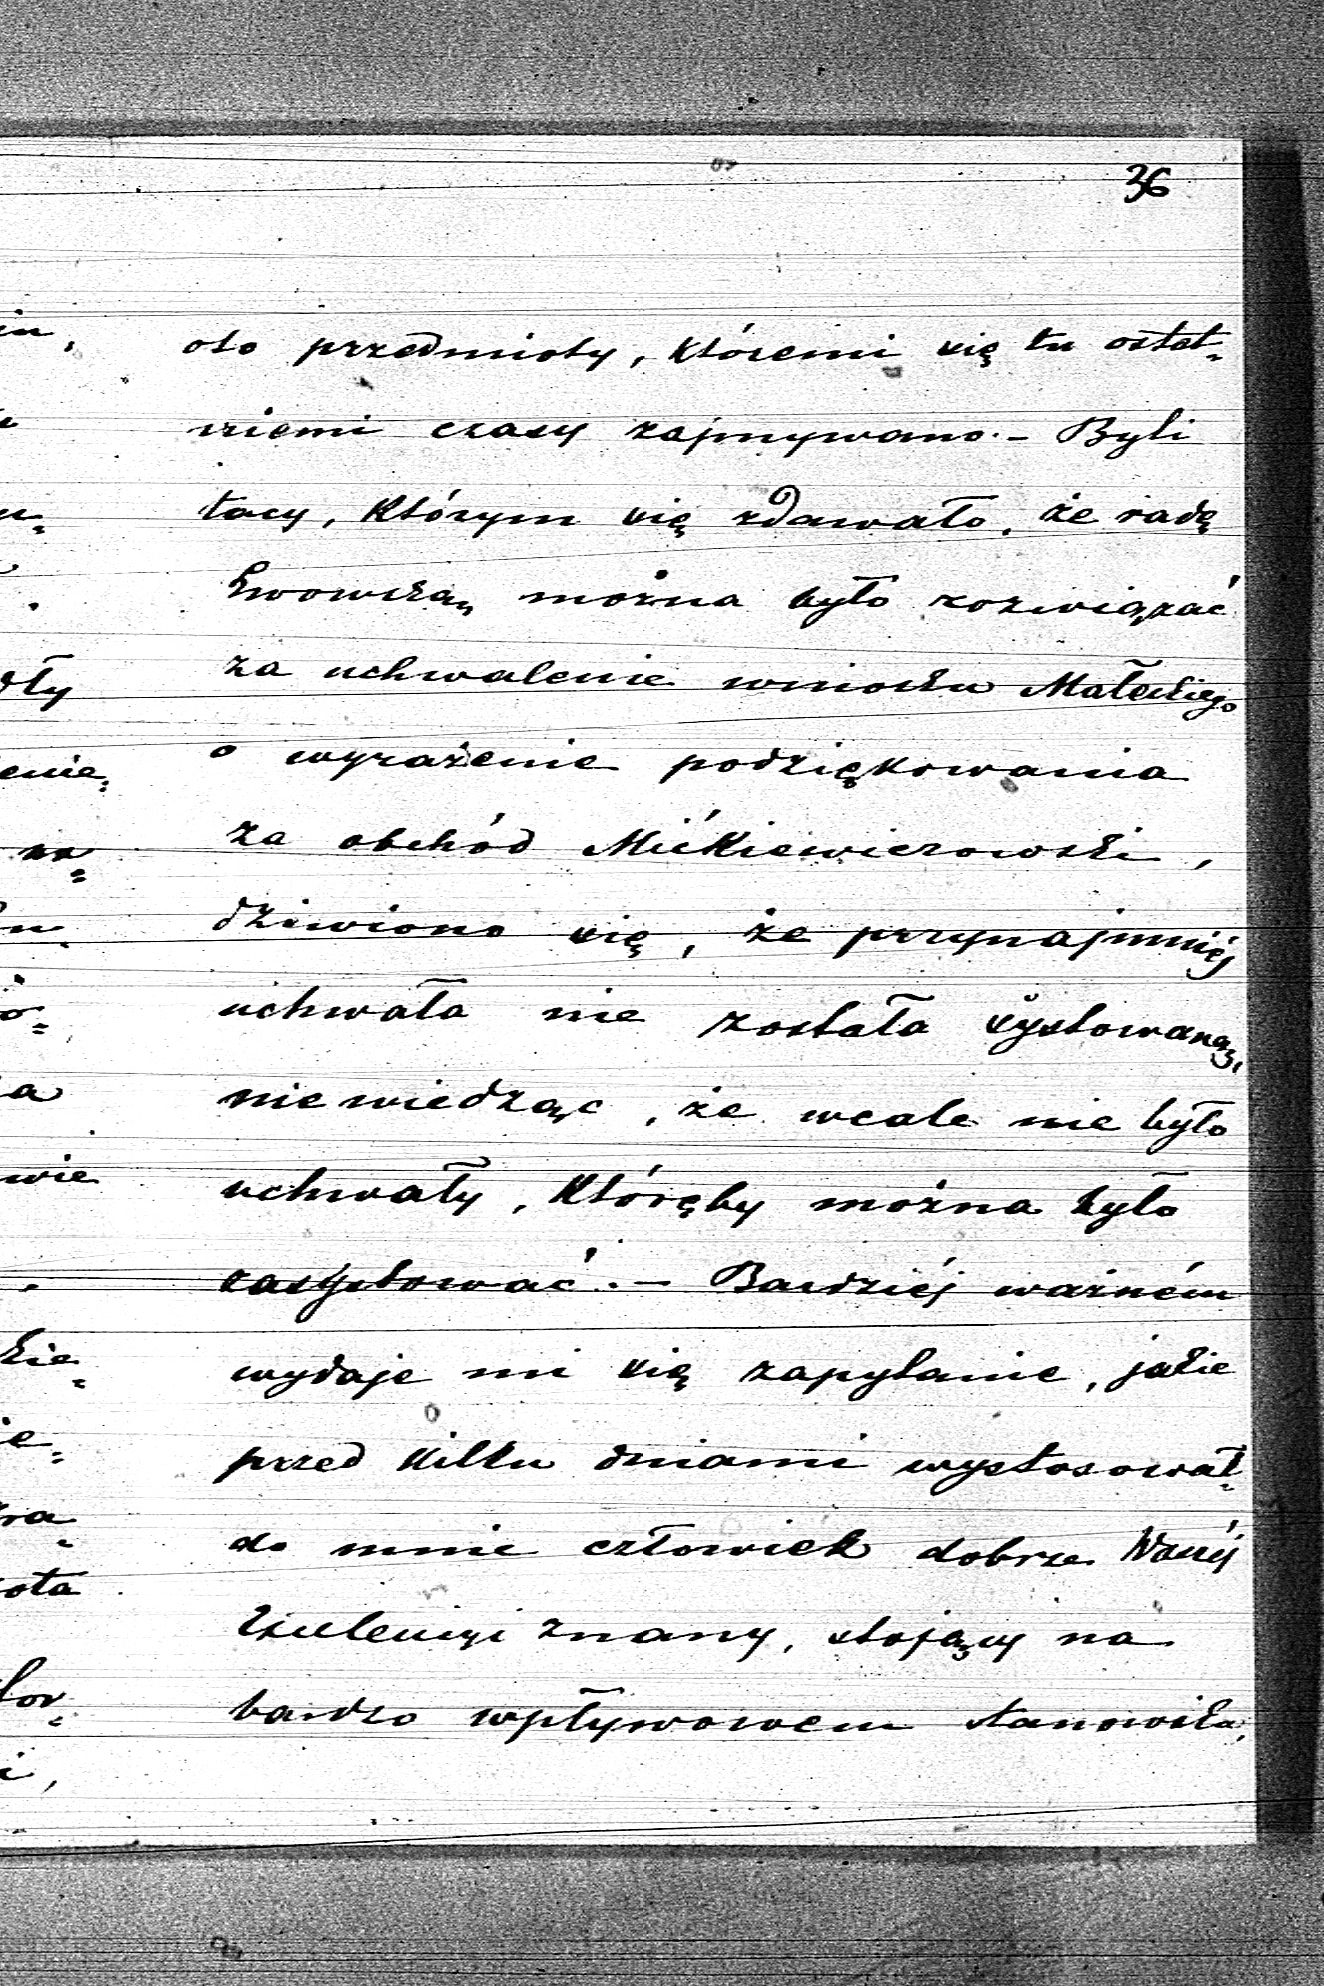 36
oto przedmioty, któremi się tu ostat-
niemi czasy zajmywano. – Byli
tacy, którym się zdawało, że radę
Lwowską można było rozwiązać
za uchwalenie wniosku Małeckiego
o wyrażenie podziękowania
za obchód Mićkiewiczowski,
dziwiono się, że przynajmniéj
uchwała nie została systowaną,
nie wiedząc, że wcale nie było
uchwały, któręby można było
zasystować. – Bardziéj ważném
wydaje mi się zapytanie, jakie
przed kilku dniami wystosował
do mnie człowiek dobrze Waszéj
Excelencyi znany, stojący na
bardzo wpływowem stanowisku,